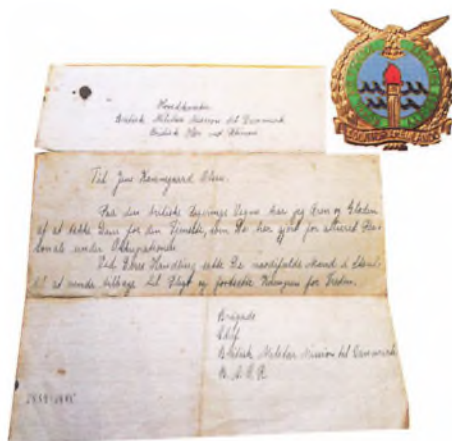 Hovedkvarter
British Militær Mission til Danmark
British Hær ved Rhinen
Til Jens Kammgaard Olsen.
Paa den britiske Regerings Vegne har jeg Æren og Glæden
af at takke Dem for den Tjeneste, som De har gjort for allieret Per-
sonale under Okkupationen.
Ved Deres Handling satte De værdifulde Mænd i Stand
til at vende tilbage til Pligt og fortsætte Kampen for Freden.
Brigade
Chef
British Militær Mission til Danmark
B. A. O. R.